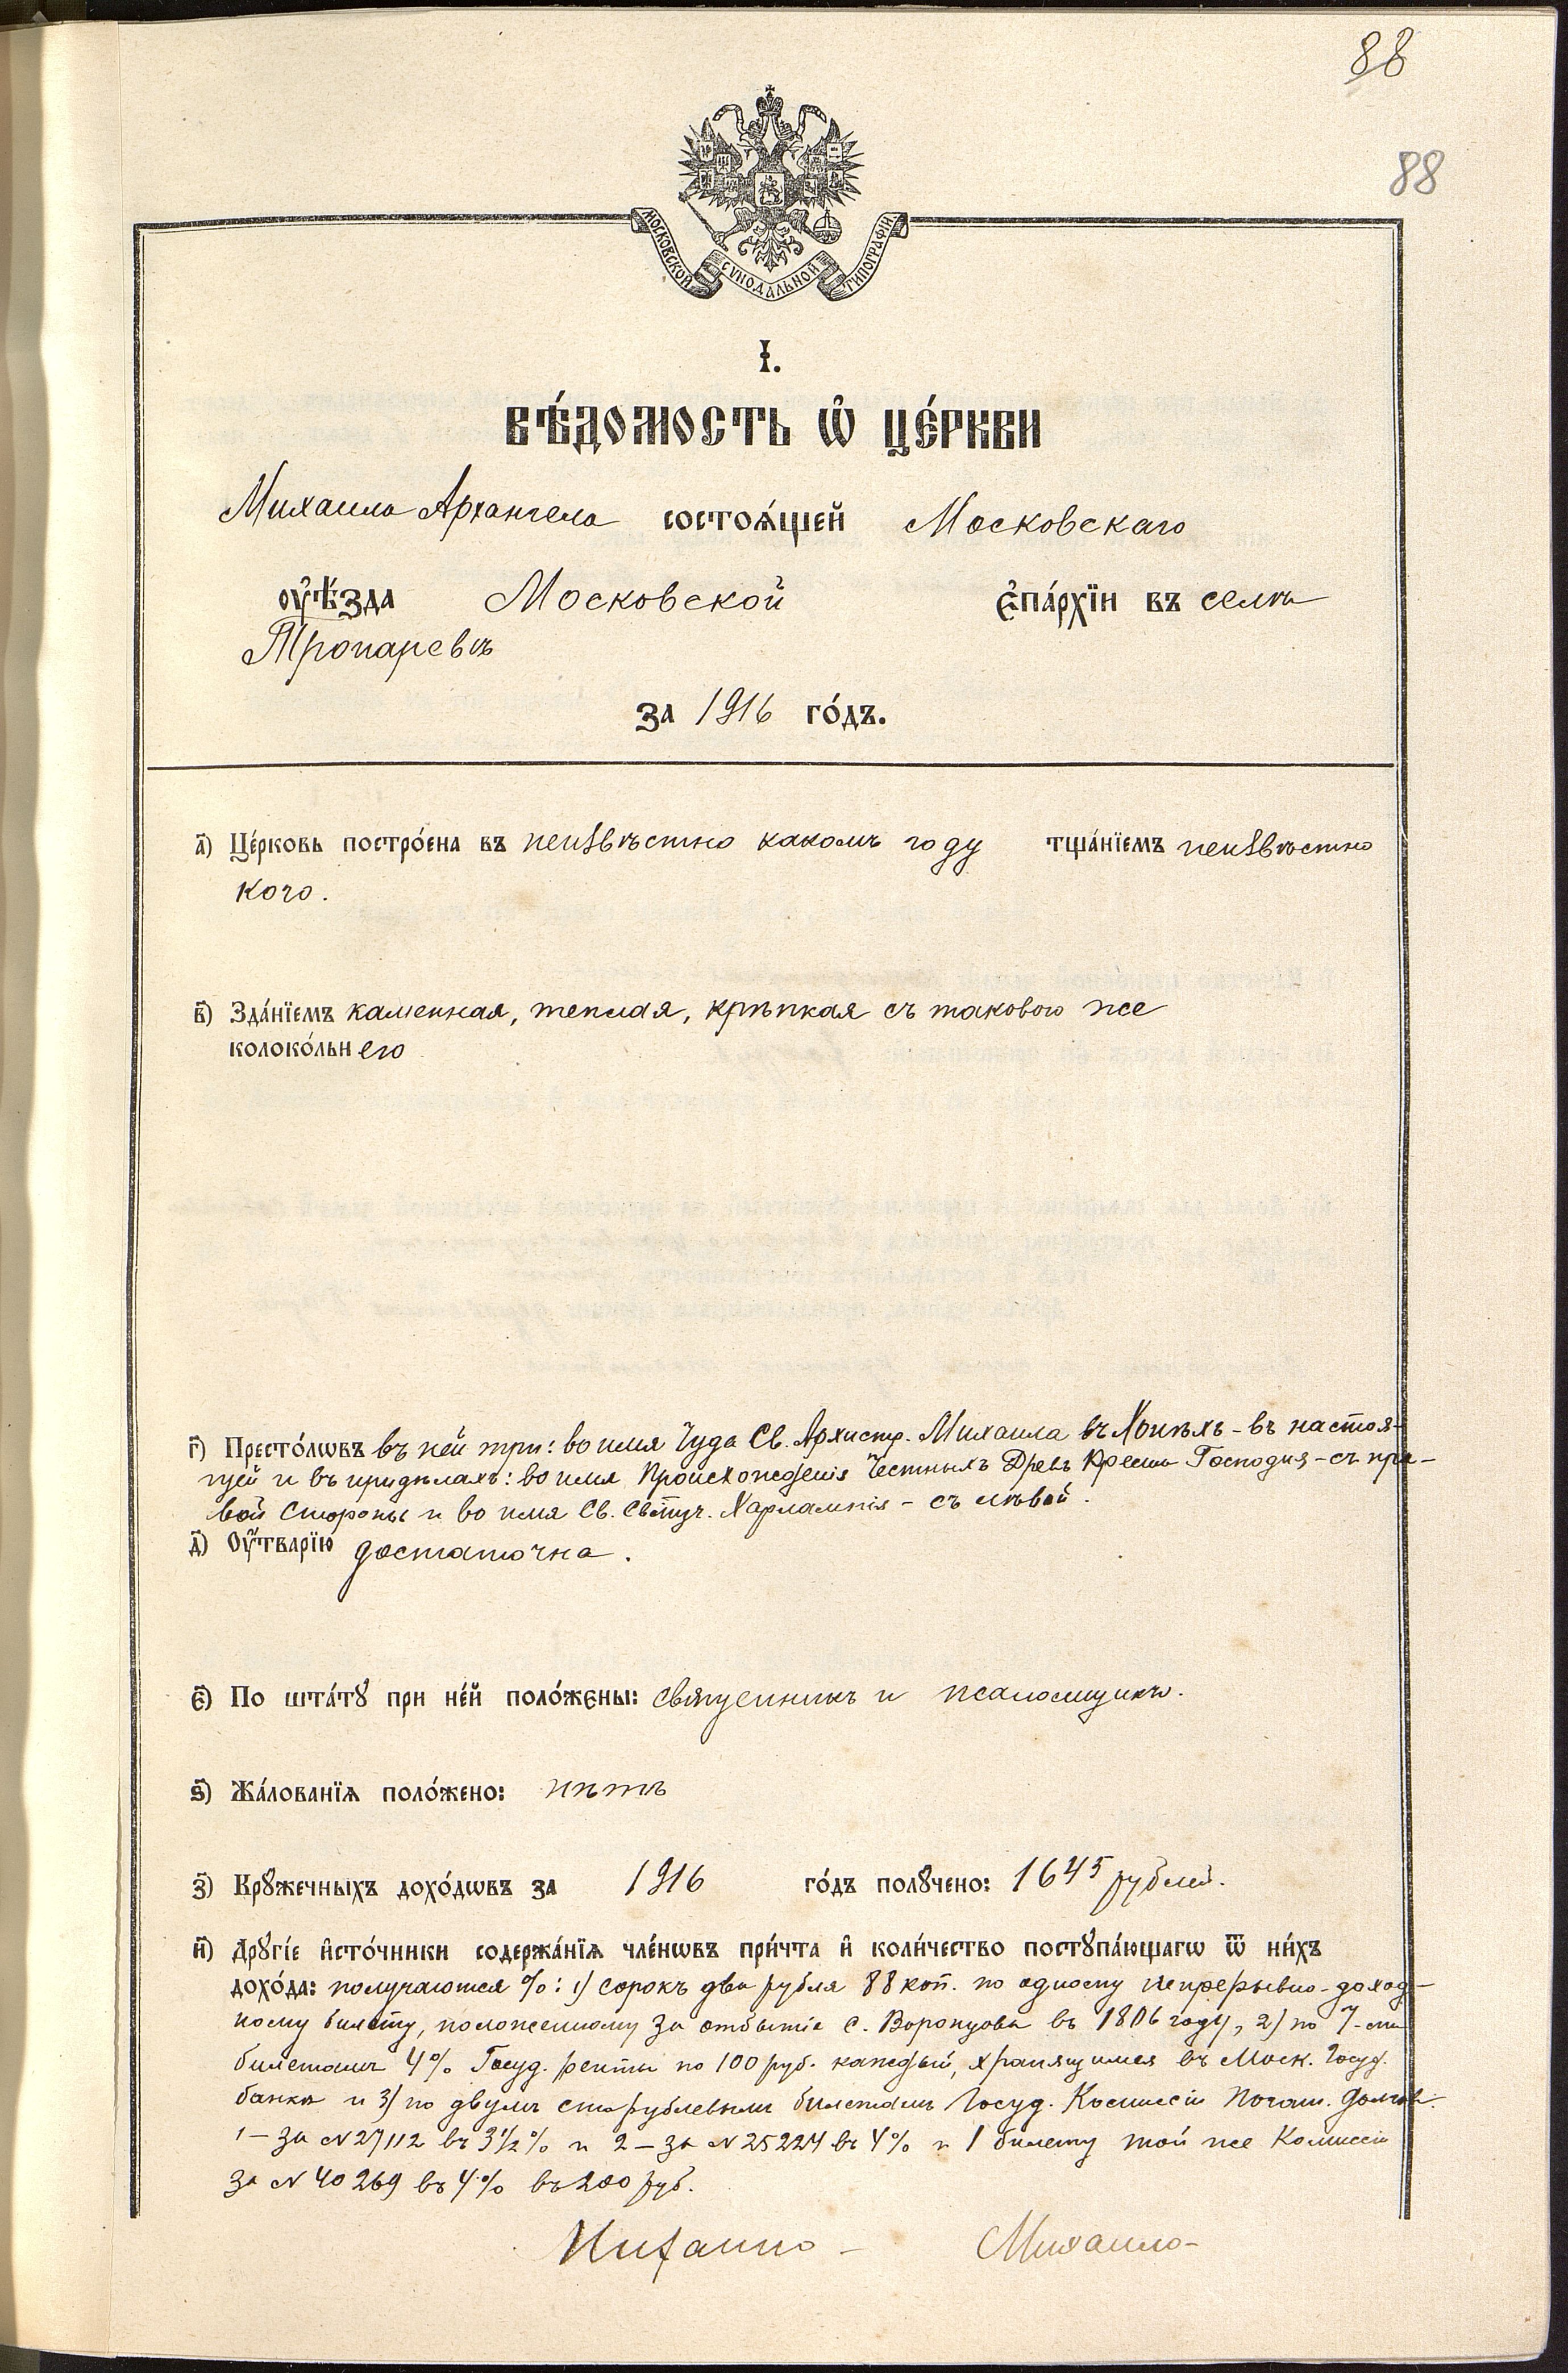 88
88
МОСКОВСКОЙ СѴНОДАЛЬНОЙ ТИПОГРАФІИ.
І.
Вѣ́домость ѡ҆ це́ркви
Михаила Архангела состоѧ́щей Московскаго
ᲂу҆ѣ́зда Московской є҆па́рхїи въ селѣ
Тропаревѣ
за 1916 го́дъ.
а҃) Це́рковь постро́ена въ неизвѣстно какомъ году тща́нїемъ неизвѣстно
кого.
в҃) Зда́нїемъ каменная, теплая, крѣпкая съ таковою же
колоко́льнею
г҃) Престо́лѡвъ въ ней три: во имя Чуда Св. Архистр. Михаила въ Хонѣхъ - въ настоя-
щей и въ придѣлахъ: во имя Происхожденія Честныхъ Древъ Креста Господня - съ пра-
вой стороны и во имя Св. Свящ. Харлампія - съ лѣвой.
д҃) Оу҆́тварїю достаточна.
є҃) По шта́тꙋ при не́й поло́жены: священникъ и псаломщикъ.
ѕ҃) Жа́лованїѧ поло́жено: нѣтъ
з҃) Крꙋжечныхъ дохо́дѡвъ за 1916 го́дъ полꙋчено: 1645 рублей.
и҃) Дрꙋгі́е и҆сто́чники содержа́нїѧ чле́нѡвъ при́чта и҆ коли́чество постꙋпа́ющагѡ ѿ ни́хъ
дохо́да: получаются %: 1) сорокъ два рубля 88 коп. по одному непрерывно-доход-
ному билету, положенному за отбытіе с. Воронцова въ 1806 году, 2) по 7-ми
билетамъ 4% Госуд. ренты по 100 руб. каждый, хранящимся въ Моск. Госуд.
банкѣ и 3) по двумъ сторублевымъ билетамъ Госуд. Коммиссіи Погаш. Долговъ.
1 - за N 27112 въ 3½% и 2 - за N 25224 въ 4% и 1 билету той же Комиссіи
за N 40269 въ 4% въ 200 руб.
Михаило-